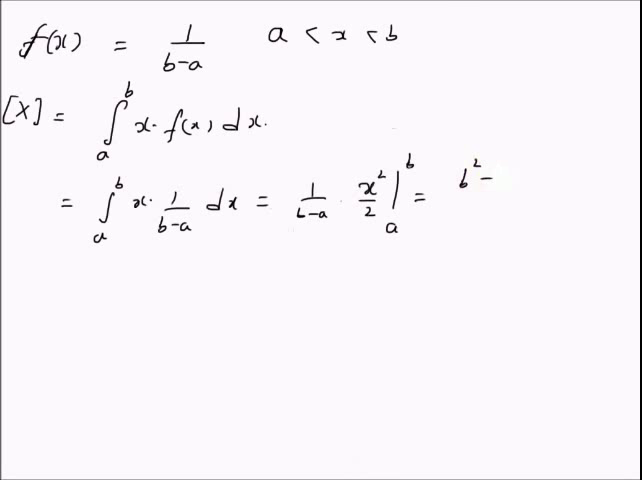 f(x) = 1/(b-a) a < x < b
[X] = ∫_a^b x· f(x) dx.
= ∫_a^b x· 1/(b-a) dx = 1/(b-a) · x²/2 |_a^b = b² -